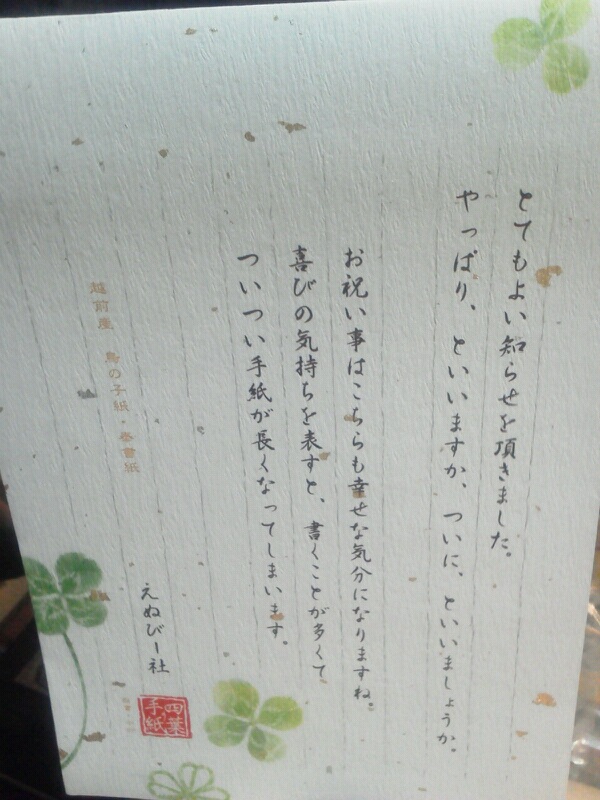 とてもよい知らせを頂きました。
やっぱり、といいますか、ついに、といいましょうか。
お祝い事はこちらも幸せな気分になりますね。
喜びの気持ちを表すと、書くことが多くて
ついつい手紙が長くなってしまいます。
えぬびー社
四葉
手紙
越前産 鳥の子紙・奉書紙